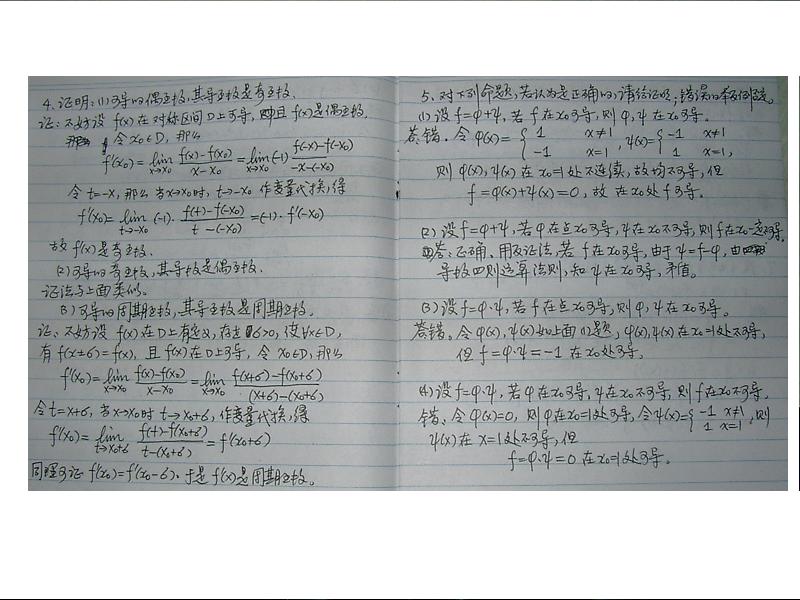 4、证明:(1)可导的偶函数,其导函数是奇函数.
证:不妨设 f(x)在对称区间D上可导,且f(x)是偶函数,
令x₀∈D,那么
f'(x₀)=lim_{x→x₀} (f(x)-f(x₀))/(x-x₀)=lim_{x→x₀}(-1)·(f(-x)-f(-x₀))/(-x-(-x₀))
令t=-x,那么当x→x₀时,t→-x₀ 作变量代换,得
f'(x₀)=lim_{t→-x₀}(-1)·(f(t)-f(-x₀))/(t-(-x₀))=(-1)·f'(-x₀)
故f'(x)是奇函数.
(2)可导的奇函数,其导函数是偶函数.
证法与上面类似。
(3)可导的周期函数,其导函数是周期函数。
证:不妨设 f(x)在D上有定义,存在6>0,使∀x∈D,
有f(x±6)=f(x),且f(x)在D上可导,令x₀∈D,那么
f'(x₀)=lim_{x→x₀} (f(x)-f(x₀))/(x-x₀)=lim_{x→x₀} (f(x+6)-f(x₀+6))/((x+6)-(x₀+6))
令t=x+6,当x→x₀时 t→x₀+6,作变量代换,得
f'(x₀)=lim_{t→x₀+6} (f(t)-f(x₀+6))/(t-(x₀+6))=f'(x₀+6)
同理可证 f'(x₀)=f'(x₀-6). 于是f'(x)是周期函数。
5、对下列命题,若认为是正确的,请给证明;错误的举反例
(1)设f=φ+ψ,若f在x₀可导,则φ,ψ在x₀可导。
答:错.令φ(x)={1 x≠1 , ψ(x)={-1 x≠1
-1 x=1 1 x=1,
则φ(x),ψ(x)在x₀=1处不连续,故均不可导,但
f=φ(x)+ψ(x)=0,故在x₀处f可导.
(2)设f=φ+ψ,若φ在点x₀可导,ψ在x₀不可导,则f在x₀一定不可导.
答:正确,用反证法,若f在x₀可导,由于ψ=f-φ,由
导数四则运算法则,知ψ在x₀可导,矛盾。
(3)设f=φ·ψ,若f在点x₀可导,则φ,ψ在x₀可导。
答错。令φ(x),ψ(x)如上面(1)题,φ(x),ψ(x)在x₀=1处不可导,
但f=φ·ψ=-1在x₀处可导。
(4)设f=φ·ψ,若φ在x₀可导,ψ在x₀不可导,则f在x₀不可导,
错、令φ(x)=0,则φ在x₀=1处可导,令ψ(x)={-1 x≠1 ,则
1 x=1
ψ(x)在x=1处不可导,但
f=φ·ψ=0在x₀=1处可导.